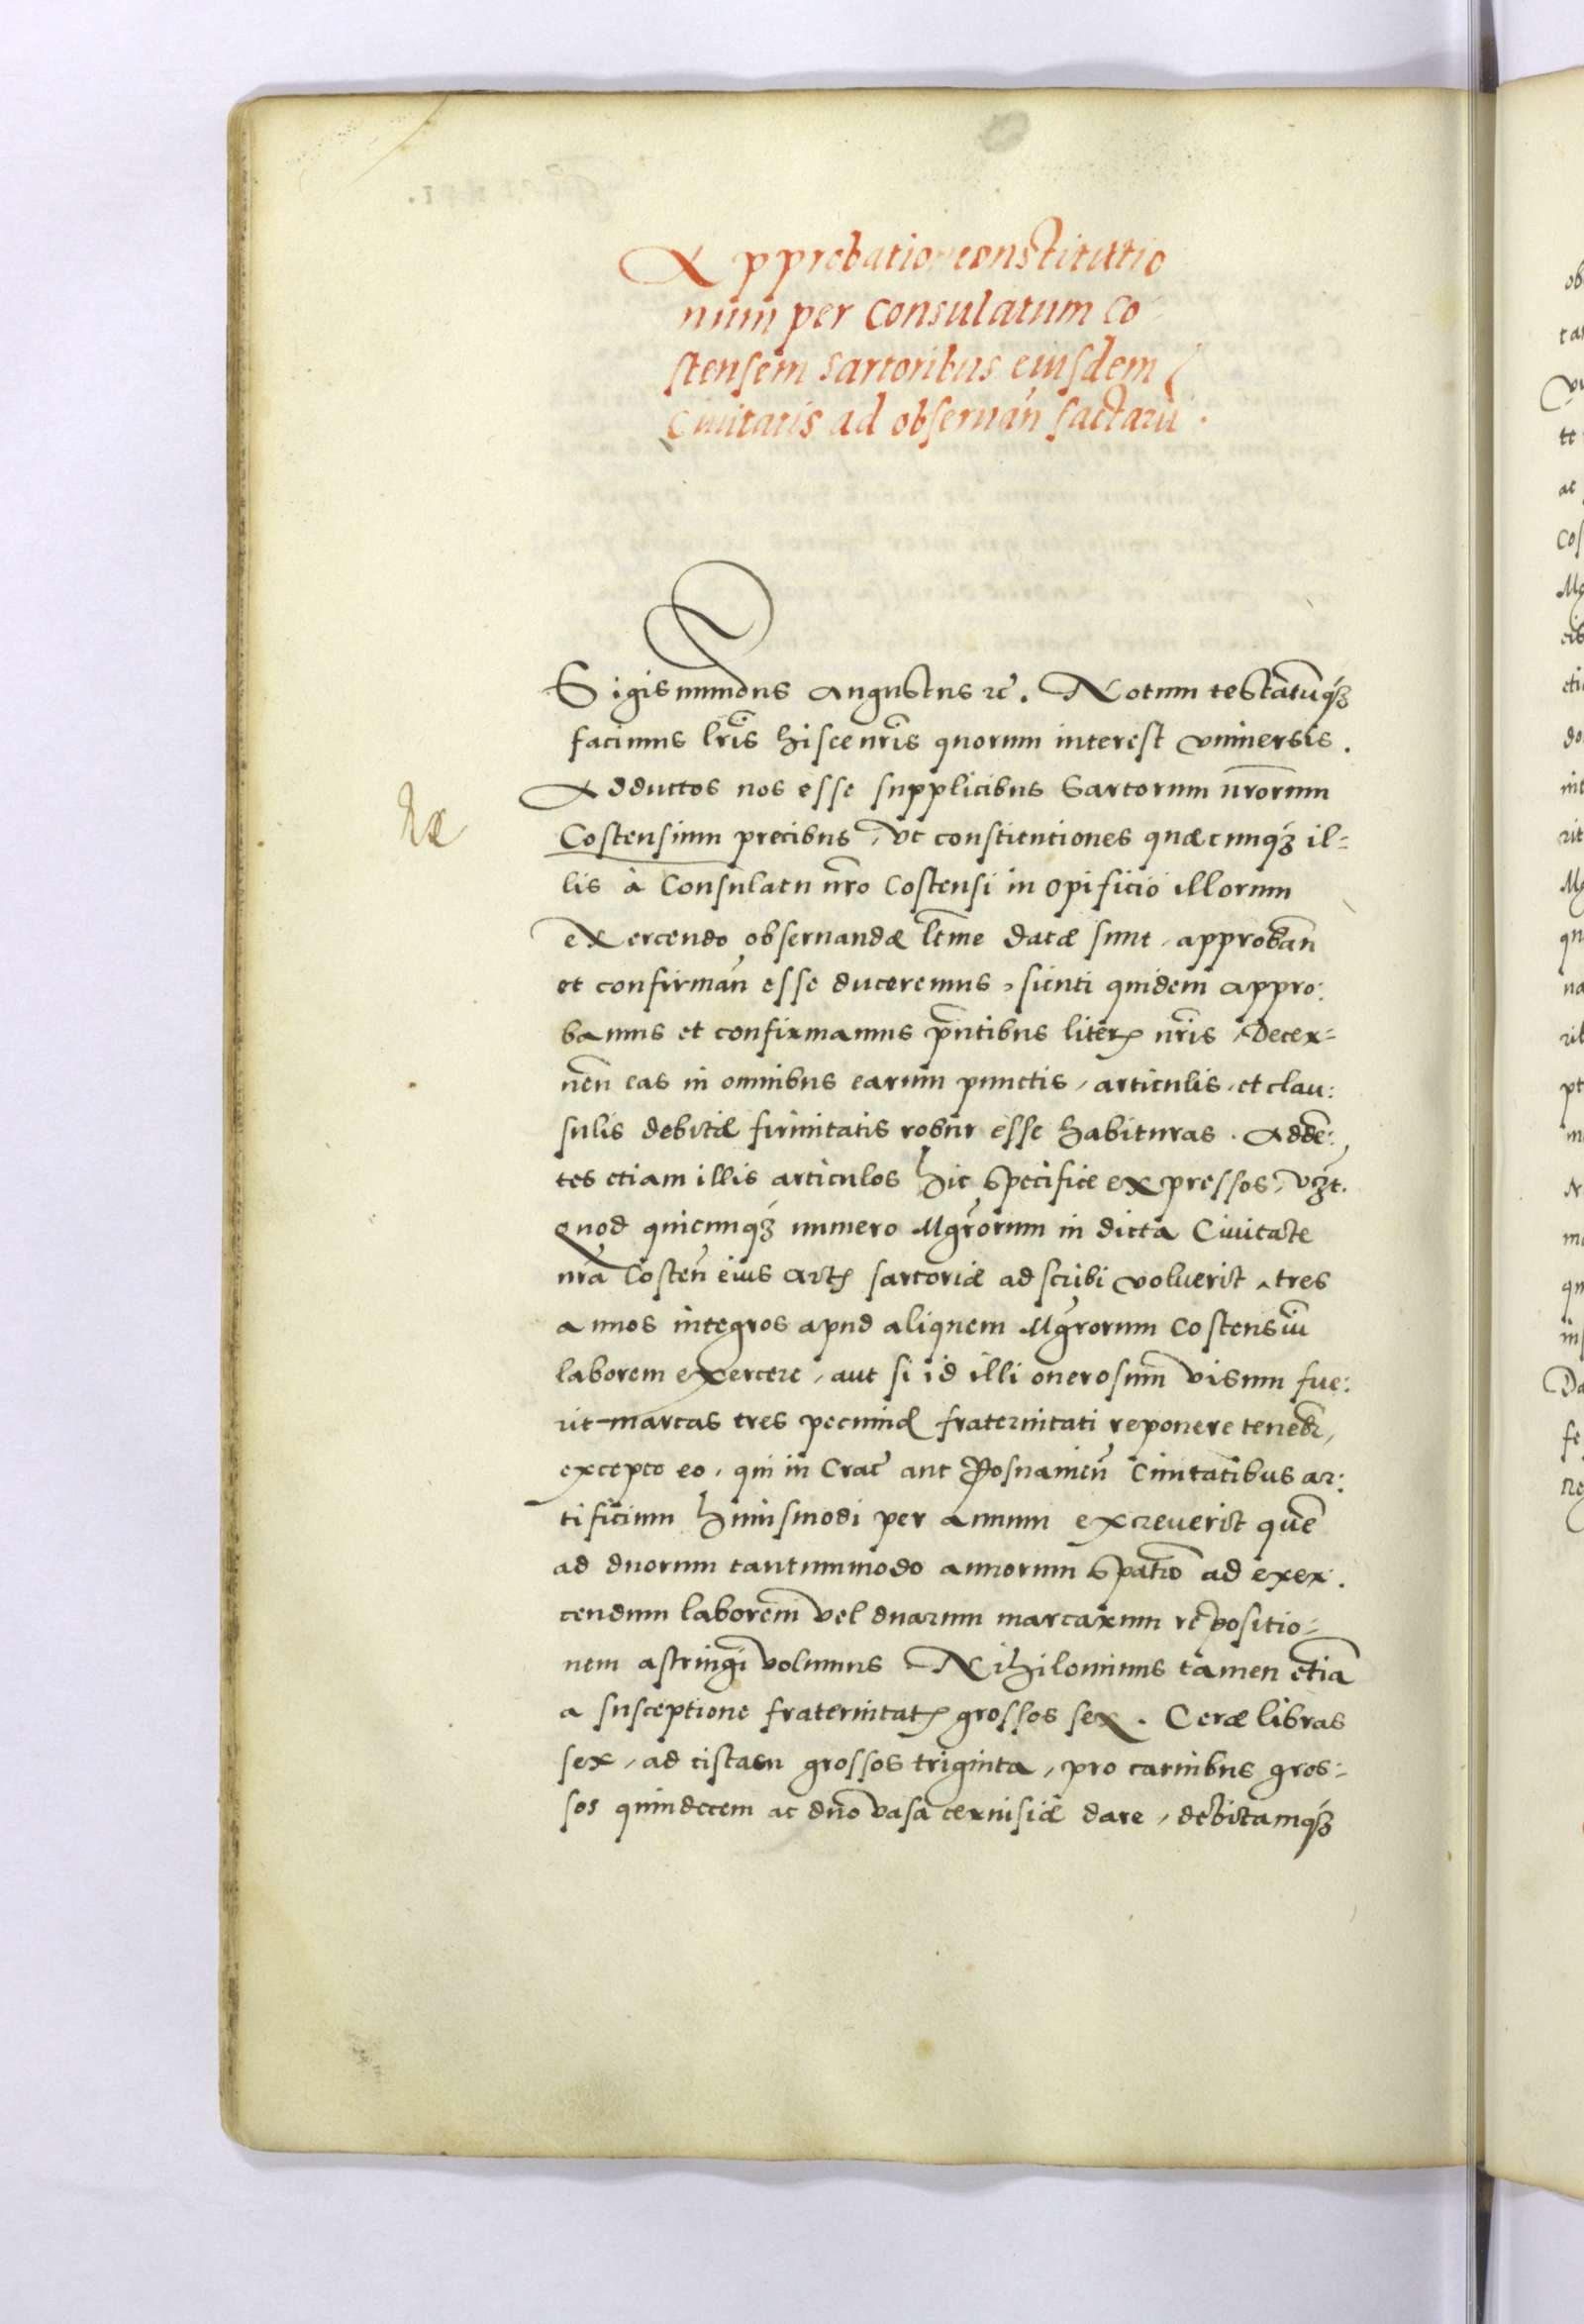 Approbatio constitutio
num per Consulatum Co
stensem Sartoribus eiusdem
Civitatis ad observan̄ factarū.
Sigismundus Augustus ꝛc̄. Notum testatumq́ꝫ
facimus lr̄is hisce nr̄is quorum interest vniversis.
Adductos nos esse supplicibus Sartorum nr̄orum
Costensium precibus, vt constitutiones quæcunq́ꝫ il=
lis à Consulatu nr̄o Costensi in opificio illorum
exercendo observandæ ltm̄e datæ sunt, approban̄
et confirman̄ esse duceremus, sicuti quidem appro:
bamus et confirmamus pn̄tibus literꝭ nr̄is, Decer=
nen̄ eas in omnibus earum punctis, articulis, et clau:
sulis debitæ firmitatis robur esse habituras. Addē:
tes etiam illis articulos hic specifice expressos, vꝫt.
Quod quicunq́ꝫ numero Mgr̄orum in dicta Civitate
nr̄a Costen̄ eius artꝭ sartoriæ adscribi voluerit, tres
annos integros apud aliquem Mgr̄orum Costensiū
laborem exercere, aut si id illi onerosum visum fue:
rit marcas tres pecuniæ fraternitati reponere tenebr̄,
excepto eo, qui in Crac̄ aut Posnanien̄ Civitatibus ar:
tificium huiusmodi per annum excreverit quē
ad duorum tantummodo annorum spatiō ad exer.
cendum laborem vel duarum marcarum repositio=
nem astringi volumus. Nihilominus tamen etiā
a susceptione fraternitatꝭ grossos sex. Ceræ libras
sex, ad cistam grossos triginta, pro carnibus gros=
sos quindecem ac duo vasa cervisiæ dare, debitamq́ꝫ